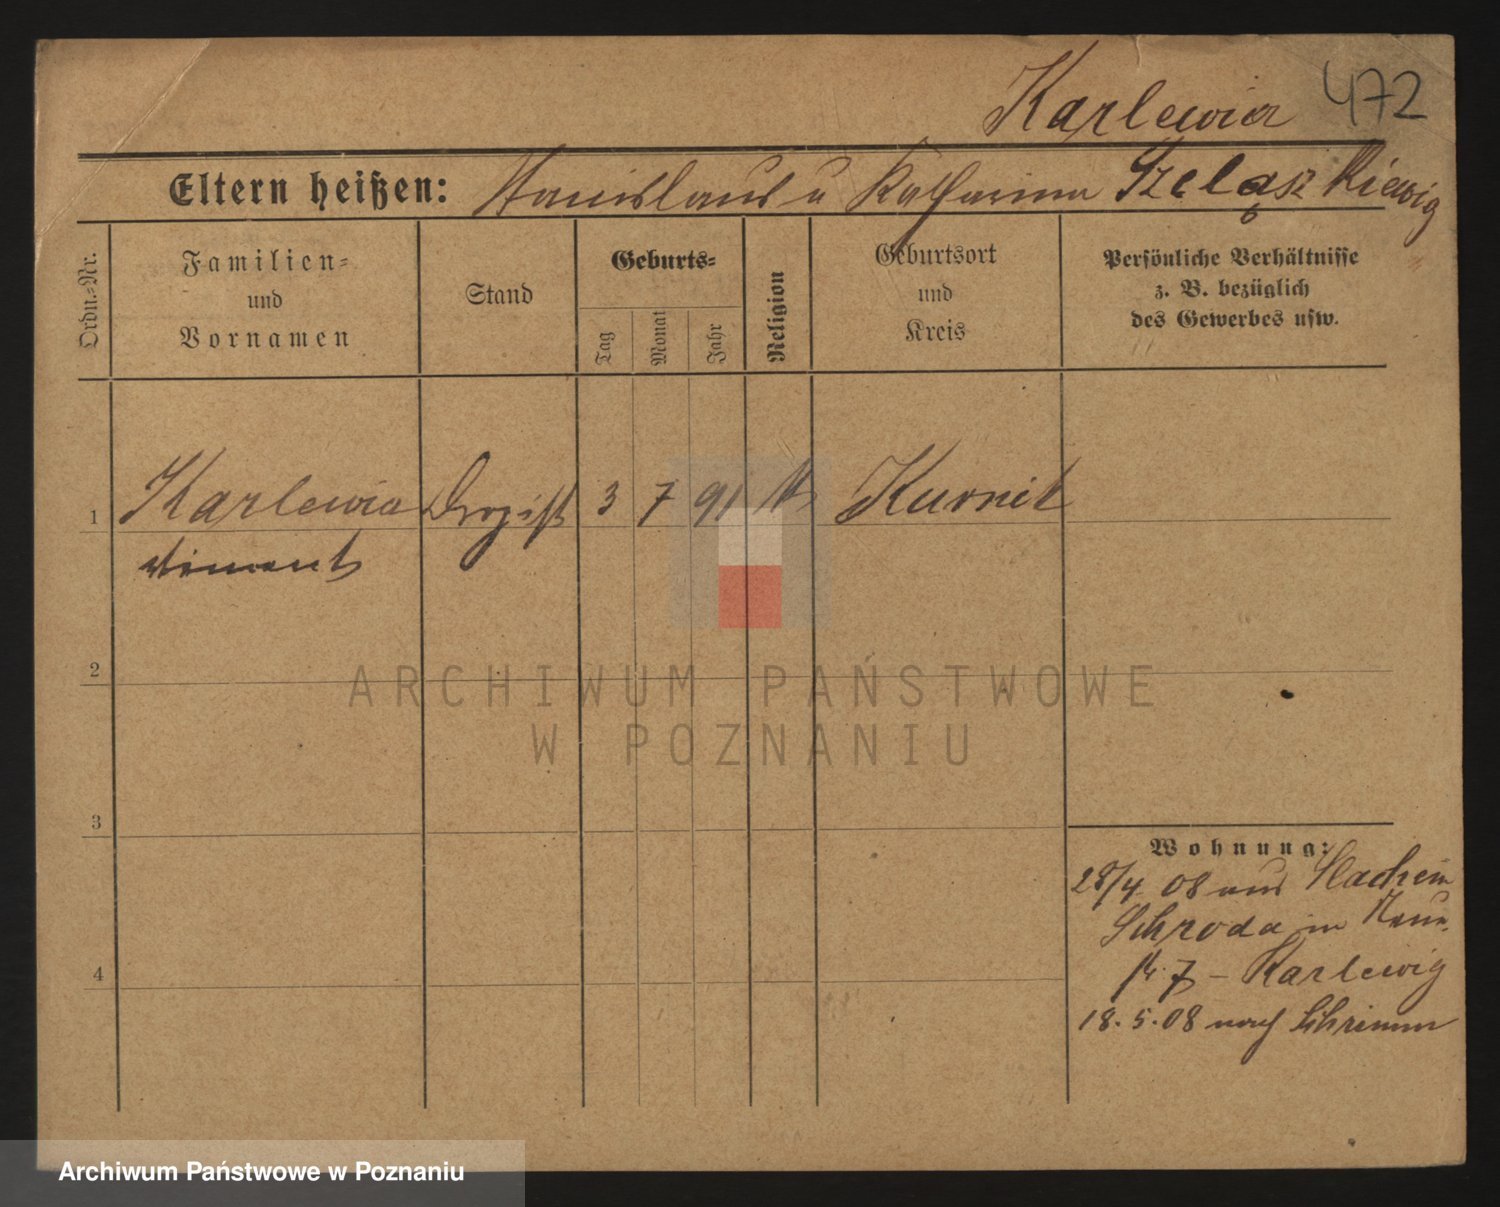 Karlewicz 472
Eltern heißen: Stanislaus u Katharina Szelążkiewicz
Ordn.-Nr.
Familien-
und
Vornamen
Stand
Geburts-
Tag
Monat
Jahr
Religion
Geburtsort
und
Kreis
Persönliche Verhältnisse
z. B. bezüglich
des Gewerbes usw.
1 Karlewicz Drogist 3 7 91 k Kurnik
Vincent
2
ARCHIWUM PAŃSTWOWE
W POZNANIU
3
Wohnung:
28/4 08 aus
Schroda in
4
7 – Karlewicz
18.5.08 nach Schrimm
Archiwum Państwowe w Poznaniu